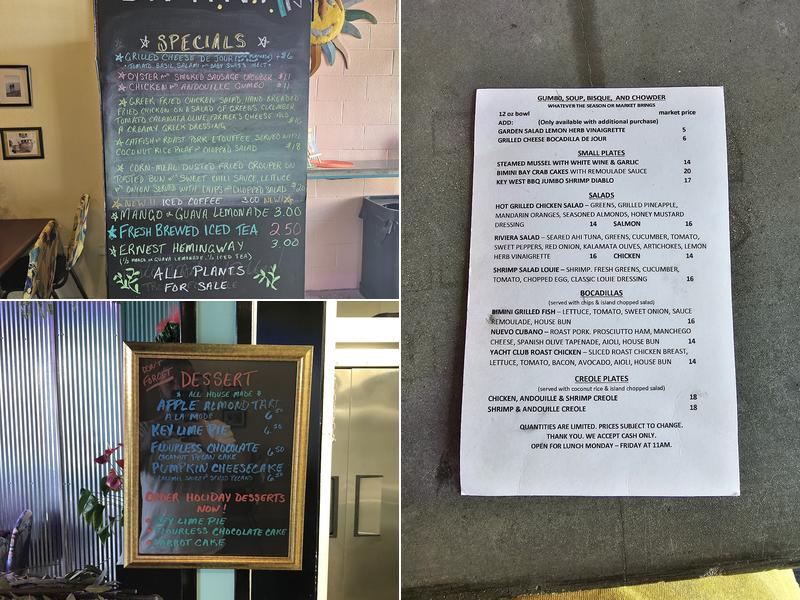 SPECIALS
GRILLED CHEESE DE JOUR +$6
TOMATO, BASIL, SALAMI BABY SWISS MELT
OYSTER SMOKED SAUSAGE CHOWDER $11
CHICKEN ANDOUILLE GUMBO $11
GREEK FRIED CHICKEN SALAD, HAND BREADED
FRIED CHICKEN ON A SALAD OF GREENS, CUCUMBER
TOMATO, CALAMATA OLIVE, FARMER'S CHEESE AND
A CREAMY GREEK DRESSING $16
CATFISH ROAST PORK ETOUFFEE SERVED WITH
COCONUT RICE PILAF CHOPPED SALAD $18
CORN-MEAL DUSTED FRIED GROUPER ON
TOASTED BUN SWEET CHILI SAUCE, LETTUCE
ONION SERVED WITH CHIPS CHOPPED SALAD $20
NEW!! ICED COFFEE 3.00 NEW!!
MANGO GUAVA LEMONADE 3.00
FRESH BREWED ICED TEA 2.50
ERNEST HEMINGWAY 3.00
(½ MANGO GUAVA LEMONADE, ½ ICED TEA)
ALL PLANTS
FOR SALE
DON'T
FORGET
DESSERT
ALL HOUSE MADE
APPLE ALMOND TART
A LA MODE 6.50
KEY LIME PIE 6.50
FLOURLESS CHOCOLATE
COCONUT PECAN CAKE 6.50
PUMPKIN CHEESECAKE
CARAMEL SAUCE SPICED PECANS 6.50
ORDER HOLIDAY DESSERTS
NOW!
KEY LIME PIE
FLOURLESS CHOCOLATE CAKE
CARROT CAKE
GUMBO, SOUP, BISQUE, AND CHOWDER
WHATEVER THE SEASON OR MARKET BRINGS
12 oz bowl market price
ADD: (Only available with additional purchase)
GARDEN SALAD LEMON HERB VINAIGRETTE 5
GRILLED CHEESE BOCADILLA DE JOUR 6
SMALL PLATES
STEAMED MUSSEL WITH WHITE WINE & GARLIC 14
BIMINI BAY CRAB CAKES WITH REMOULADE SAUCE 20
KEY WEST BBQ JUMBO SHRIMP DIABLO 17
SALADS
HOT GRILLED CHICKEN SALAD – GREENS, GRILLED PINEAPPLE,
MANDARIN ORANGES, SEASONED ALMONDS, HONEY MUSTARD
DRESSING 14 SALMON 16
RIVIERA SALAD – SEARED AHI TUNA, GREENS, CUCUMBER, TOMATO,
SWEET PEPPERS, RED ONION, KALAMATA OLIVES, ARTICHOKES, LEMON
HERB VINAIGRETTE 16 CHICKEN 14
SHRIMP SALAD LOUIE – SHRIMP, FRESH GREENS, CUCUMBER,
TOMATO, CHOPPED EGG, CLASSIC LOUIE DRESSING 16
BOCADILLAS
(served with chips & island chopped salad)
BIMINI GRILLED FISH – LETTUCE, TOMATO, SWEET ONION, SAUCE
REMOULADE, HOUSE BUN 16
NUEVO CUBANO – ROAST PORK, PROSCIUTTO HAM, MANCHEGO
CHEESE, SPANISH OLIVE TAPENADE, AIOLI, HOUSE BUN 14
YACHT CLUB ROAST CHICKEN – SLICED ROAST CHICKEN BREAST,
LETTUCE, TOMATO, BACON, AVOCADO, AIOLI, HOUSE BUN 14
CREOLE PLATES
(served with coconut rice & island chopped salad)
CHICKEN, ANDOUILLE & SHRIMP CREOLE 18
SHRIMP & ANDOUILLE CREOLE 18
QUANTITIES ARE LIMITED. PRICES SUBJECT TO CHANGE.
THANK YOU. WE ACCEPT CASH ONLY.
OPEN FOR LUNCH MONDAY – FRIDAY AT 11AM.